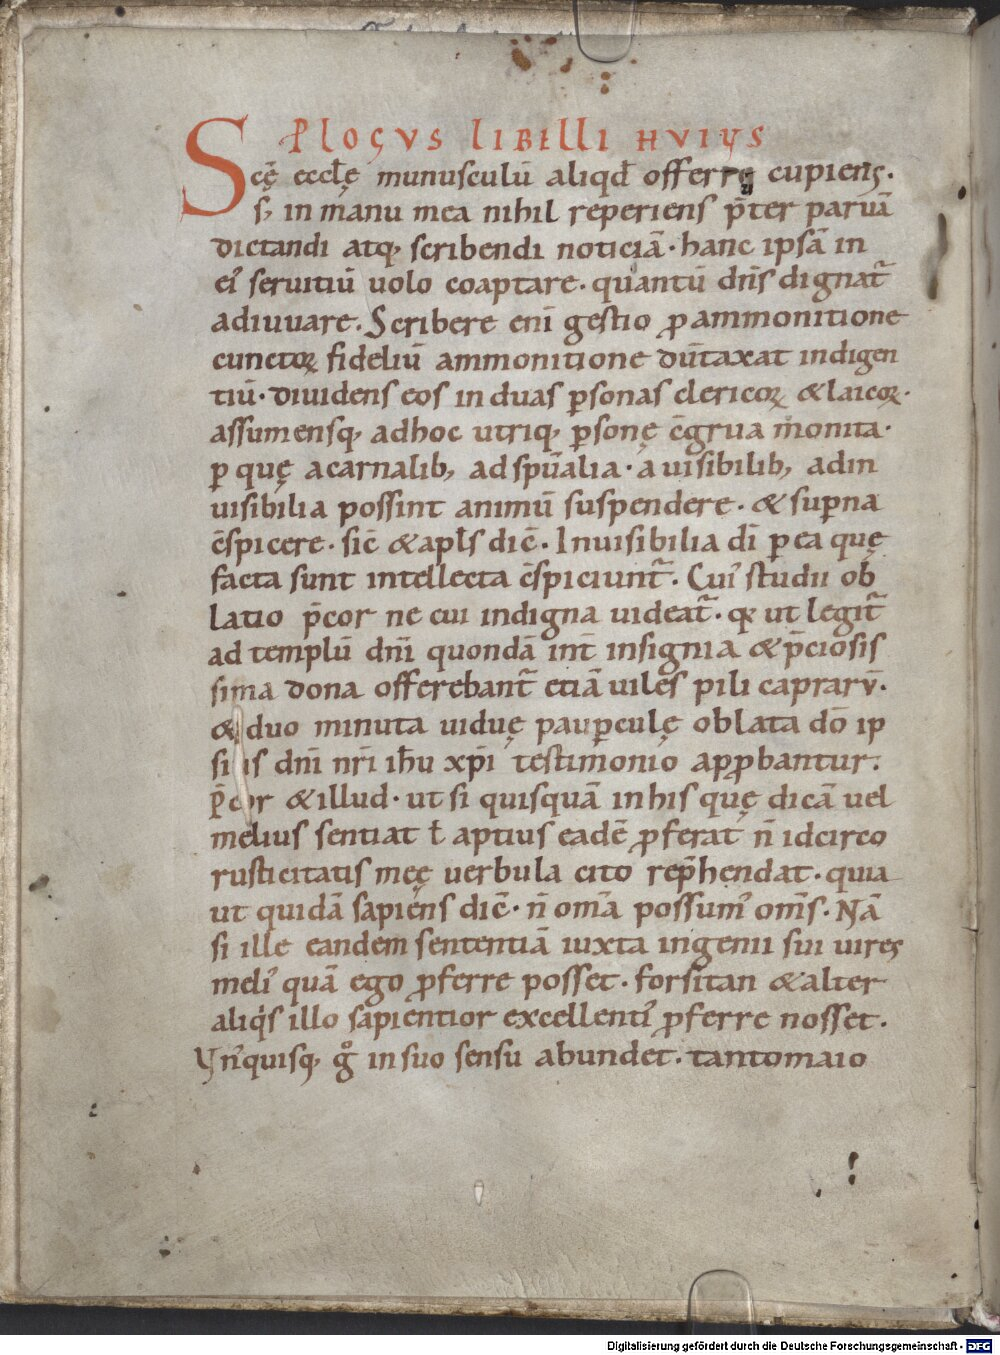 PLOGVS LIBELLI HVIVS
Scę ecclę munusculū aliqd offerre cupiens.
s; in manu mea nihil reperiens p̄ter paruā
dictandi atq; scribendi noticiā. hanc ipsā in
ei᾽ seruitiū uolo coaptare. quantū dn̄s dignat᷑
adiuuare. Scribere eni̅ gestio ꝓ ammonitione
cunctoꝝ fideliū ammonitione dūtaxat indigen
tiū. diuidens eos in duas ꝑsonas clericoꝝ &laicoꝝ.
assumensq; adhoc utriq; ꝑsonę c̄grua monita.
ꝑ quę acarnalib; ad spūalia. a uisibilib; adin
uisibilia possint animū suspendere. & suꝑna
c̄spicere. sic̄ & apls dic̄. Inuisibilia di̅ ꝑ ea quę
facta sunt intellecta c̄spiciunt᷑. Cui᾽ studii ob
latio p̄cor ne cui indigna uideat᷑. qꝛ ut legit᷑
ad templū dn̄i quondā int̄ insignia &p̄ciosis
sima dona offerebant᷑ etiā uiles pili caprarū.
& duo minuta uiduę pauꝑculę oblata dō ip
sius dn̄i nr̄i ihu xp̄i testimonio apꝓbantur.
p̄cor &illud. ut si quisquā inhis quę dicā uel
melius sentiat ł aptius eadē ꝓferat n̄ idcirco
rusticitatis meę uerbula cito rep̄hendat. quia
ut quidā sapiens dic̄. n̄ omā possum᾽ om̄s. Nā
si ille eandem sententiā iuxta ingenii sui uires
meli᾽ quā ego ꝓferre posset. forsitan &alter
aliqͥs illo sapientior excellenti᾽ ꝓferre nosset.
Vn᾽quisq; gͦ in suo sensu abundet. tantomaio
Digitalisierung gefördert durch die Deutsche Forschungsgemeinschaft - DFG